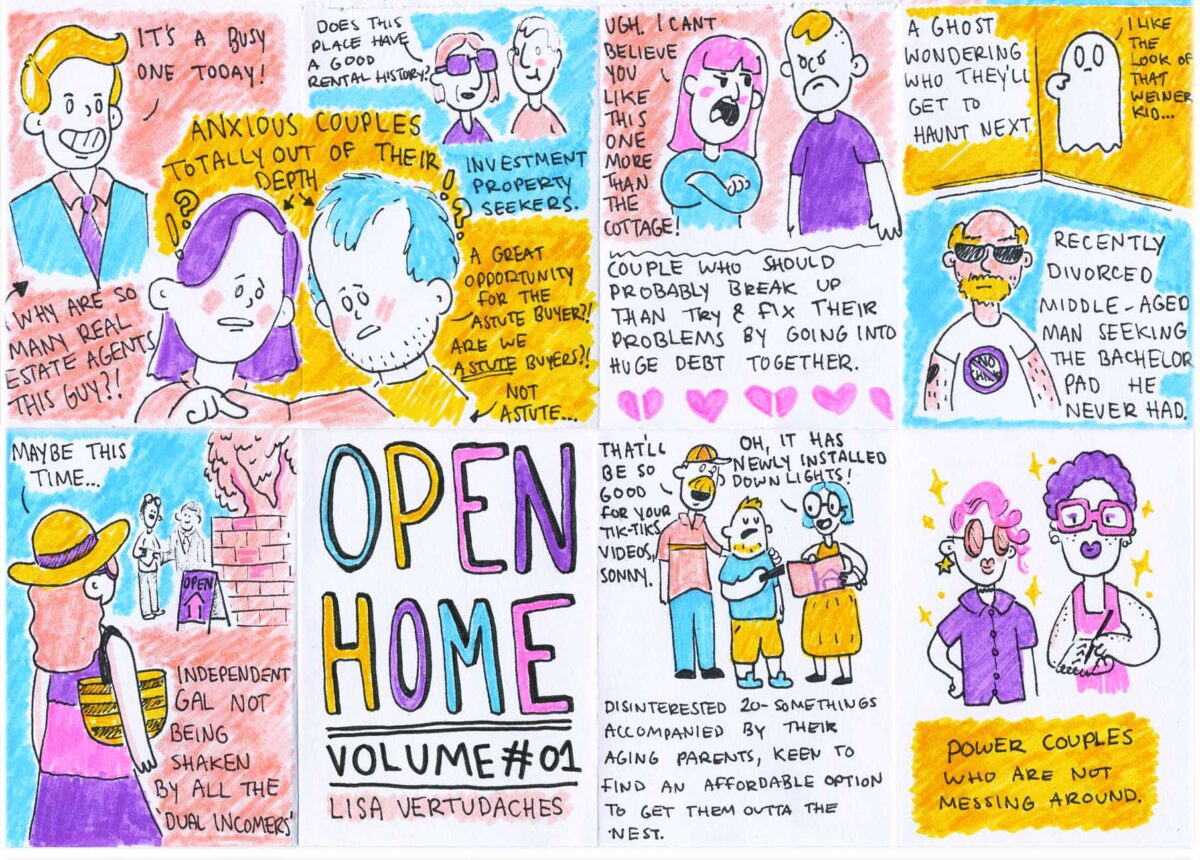 IT'S A BUSY
ONE TODAY!
WHY ARE SO
MANY REAL
ESTATE AGENTS
THIS GUY?!
DOES THIS
PLACE HAVE
A GOOD
RENTAL HISTORY?
INVESTMENT
PROPERTY
SEEKERS.
ANXIOUS COUPLES
TOTALLY OUT OF THEIR
DEPTH
!?
!?
A GREAT
OPPORTUNITY
FOR THE
ASTUTE BUYER?!
ARE WE
ASTUTE BUYERS?!
NOT
ASTUTE...
UGH. I CANT
BELIEVE
YOU
LIKE
THIS
ONE
MORE
THAN
THE
COTTAGE!
COUPLE WHO SHOULD
PROBABLY BREAK UP
THAN TRY & FIX THEIR
PROBLEMS BY GOING INTO
HUGE DEBT TOGETHER.
A GHOST
WONDERING
WHO THEY'LL
GET TO
HAUNT NEXT
I LIKE
THE
LOOK OF
THAT
WEINER
KID...
RECENTLY
DIVORCED
MIDDLE-AGED
MAN SEEKING
THE BACHELOR
PAD HE
NEVER HAD.
MAYBE THIS
TIME...
OPEN
INDEPENDENT
GAL NOT
BEING
SHAKEN
BY ALL THE
'DUAL INCOMERS'
OPEN
HOME
VOLUME #01
LISA VERTUDACHES
THAT'LL
BE SO
GOOD
FOR YOUR
TIK-TIKS
VIDEOS,
SONNY.
OH, IT HAS
NEWLY INSTALLED
DOWN LIGHTS!
DISINTERESTED 20-SOMETHINGS
ACCOMPANIED BY THEIR
AGING PARENTS, KEEN TO
FIND AN AFFORDABLE OPTION
TO GET THEM OUTTA THE
NEST.
POWER COUPLES
WHO ARE NOT
MESSING AROUND.